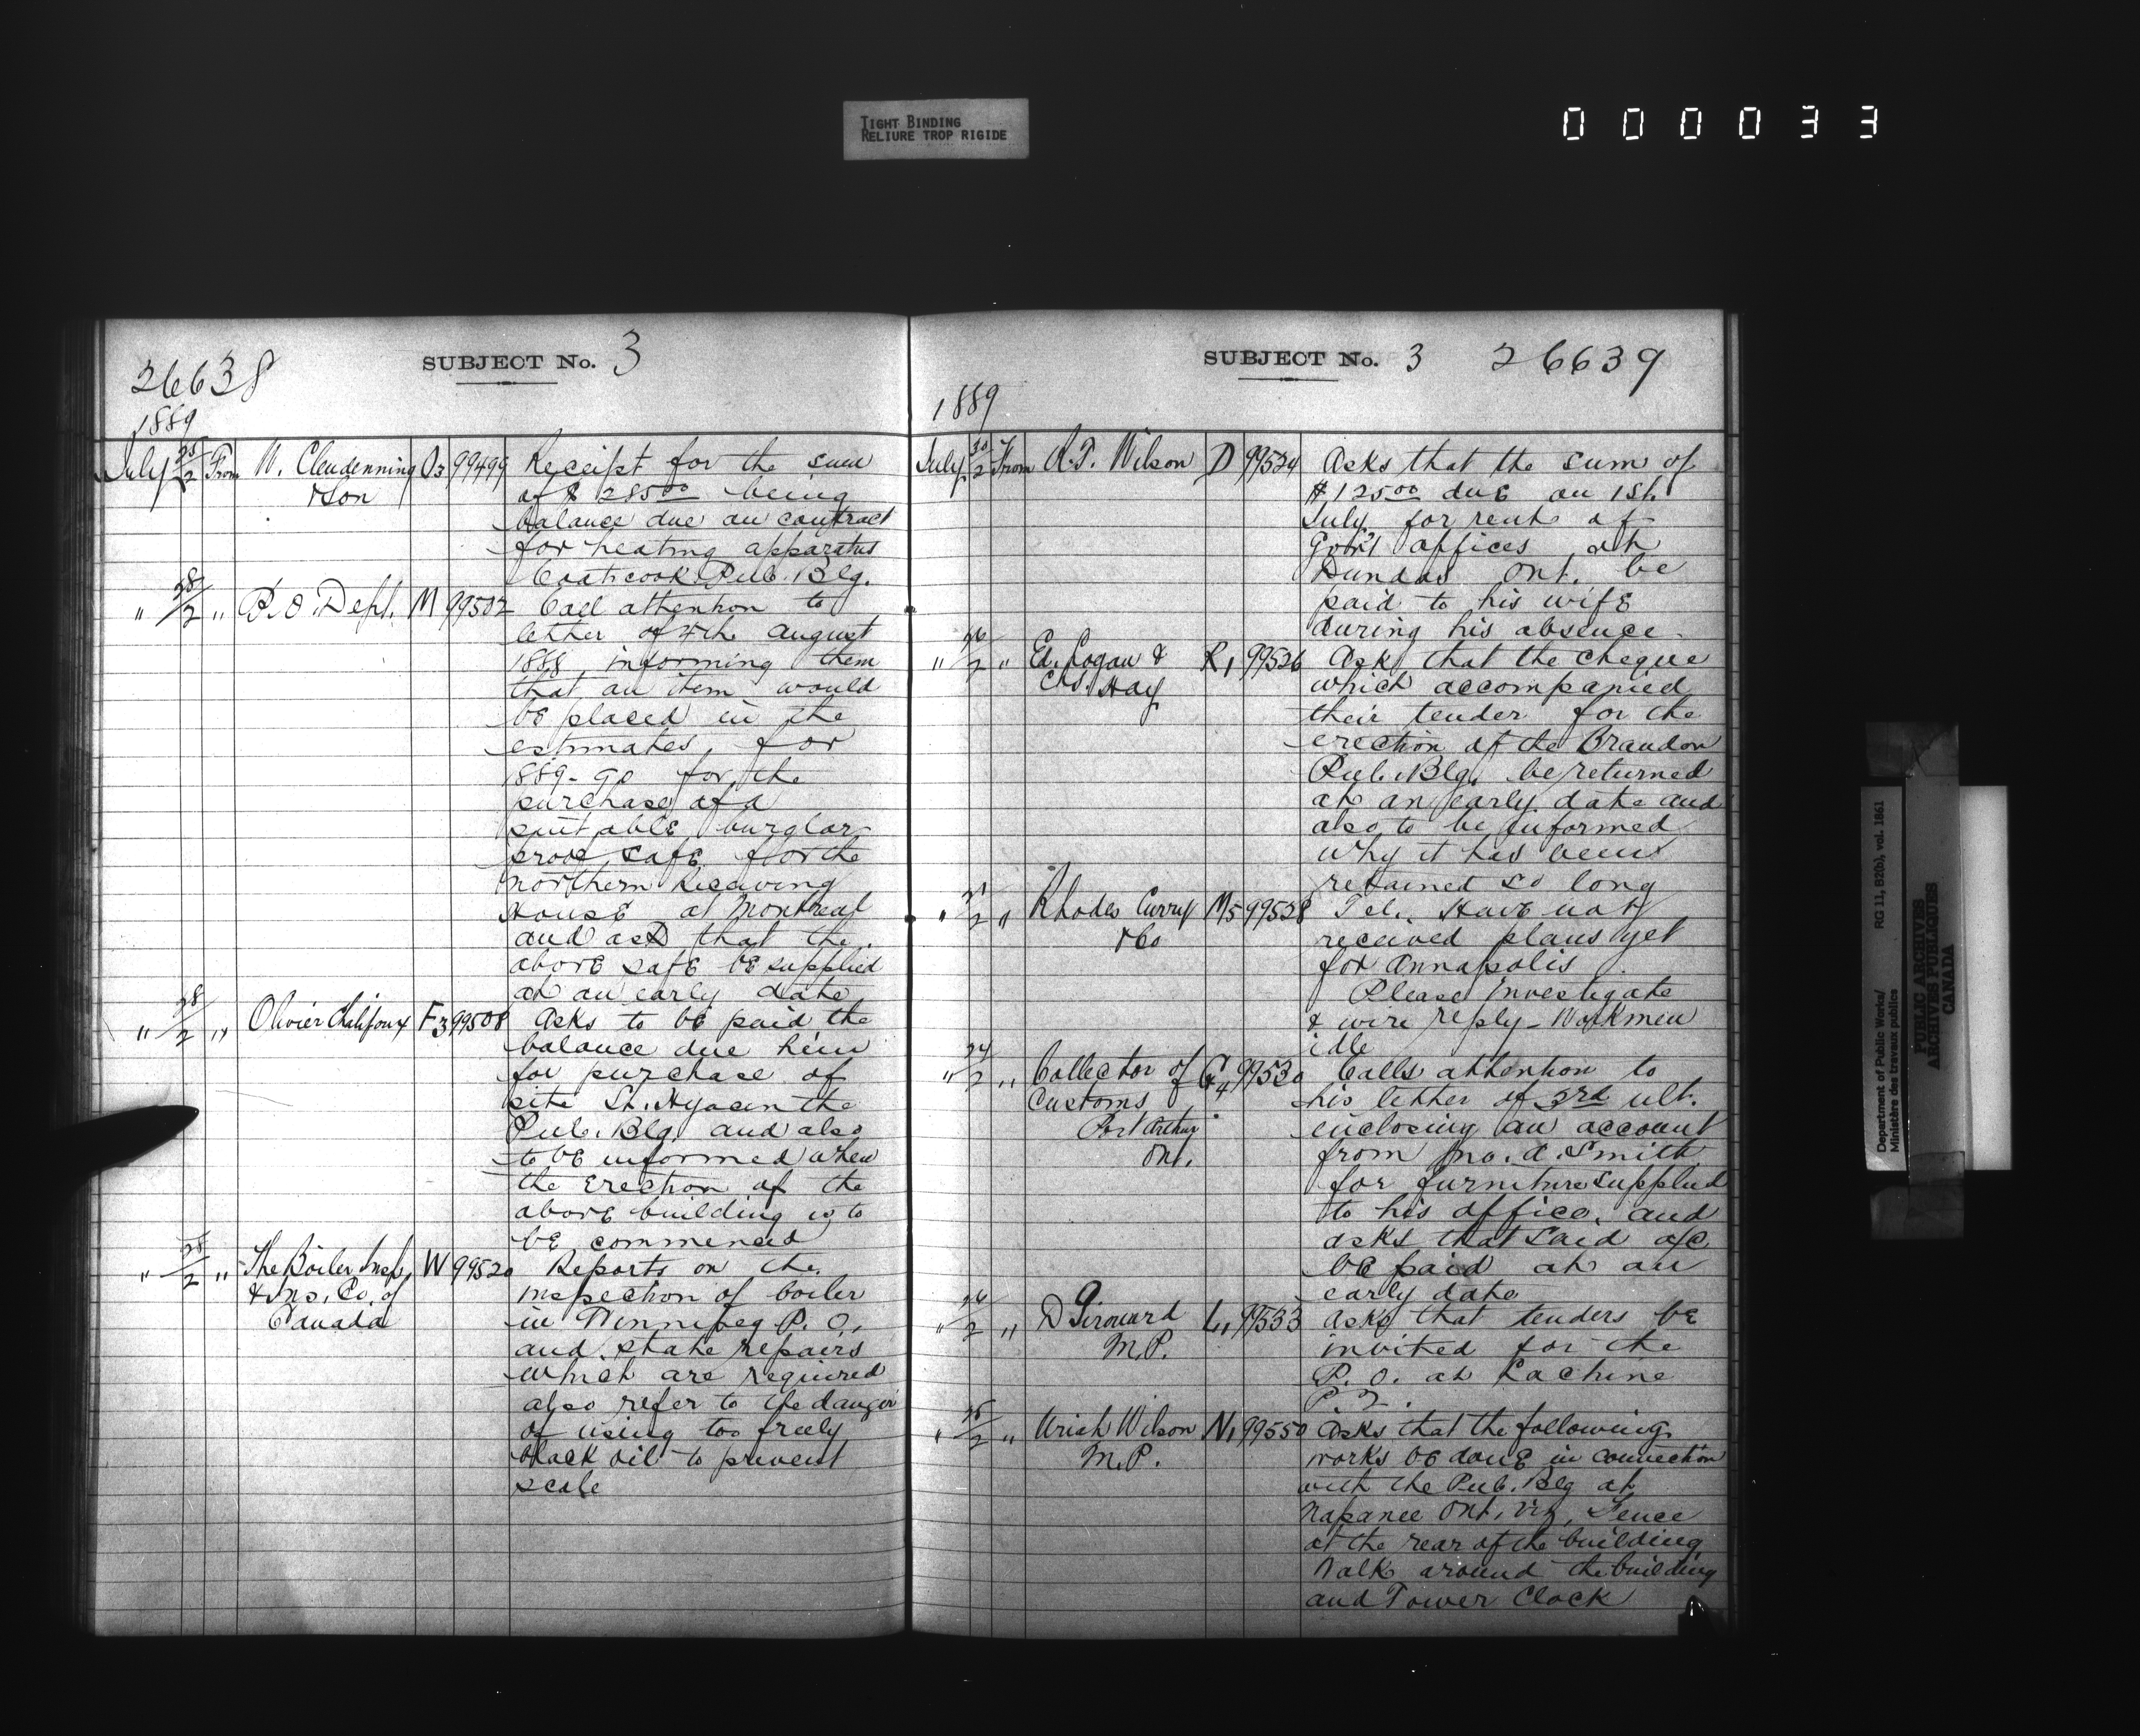 TIGHT BINDING
RELIURE TROP RIGIDE
000033
26638
SUBJECT No. 3
1889
July 25/2 From W. Clendenning O3 99499 Receipt for the sum
& Son of $285 00 being
balance due on contract
for heating apparatus
Coaticook Pub. Blg.
" 28/2 " P.O. Dept. M 99502 Call attention to
letter of 4th August
1888, informing them
that an item would
be placed in the
estimates, for
1889-90 for the
purchase of a
suitable burglar
proof safe for the
northern Receiving
House at Montreal
and ask that the
above safe be supplied
at an early date
" 28/2 " Olivier Chalifoux F3 99508 Asks to be paid the
balance due him
for purchase of
site St. Hyacinthe
Pub. Blg. and also
to be informed when
the erection of the
above building is to
be commenced
" 28/2 " The Boiler Insp. W 99520 Reports on the
& Ins. Co. of inspection of boiler
Canada in Winnipeg P.O.,
and state repairs
which are required
also refer to the danger
of using too freely
black oil to prevent
scale
SUBJECT No. 3 26639
1889
July 30/2 From R.T. Wilson D 99524 Asks that the sum of
$125 00 due on 1st.
July for rent of
Gov't offices at
Dundas Ont. be
paid to his wife
during his absence.
" 26/2 " Ed. Logan & R1 99526 Ask that the cheque
Chs. Hay which accompanied
their tender for the
erection of the Brandon
Pub. Blg. be returned
at an early date and
also to be informed
why it has been
retained so long
" 31/2 " Rhodes Curry M5 99528 Tel. Have not
& Co received plans yet
for Annapolis.
Please investigate
& wire reply - Workmen
idle
" 24/2 " Collector of G4 99530 Calls attention to
Customs his letter of 3rd ult.
Port Arthur enclosing an account
Ont. from Jno. A. Smith
for furniture supplied
to his office, and
asks that said a/c
be paid at an
early date
" 26/2 " D Girouard L1 99533 Asks that tenders be
M.P. invited for the
P.O. at Lachine
P.Q.
" 25/2 " Uriah Wilson N1 99550 Asks that the following
M.P. works be done in connection
with the Pub. Blg at
Napanee Ont. viz, Fence
at the rear of the building
Walk around the building
and Tower Clock
Department of Public Works/ RG 11, B2(b), vol. 1861
Ministère des travaux publics
PUBLIC ARCHIVES
ARCHIVES PUBLIQUES
CANADA